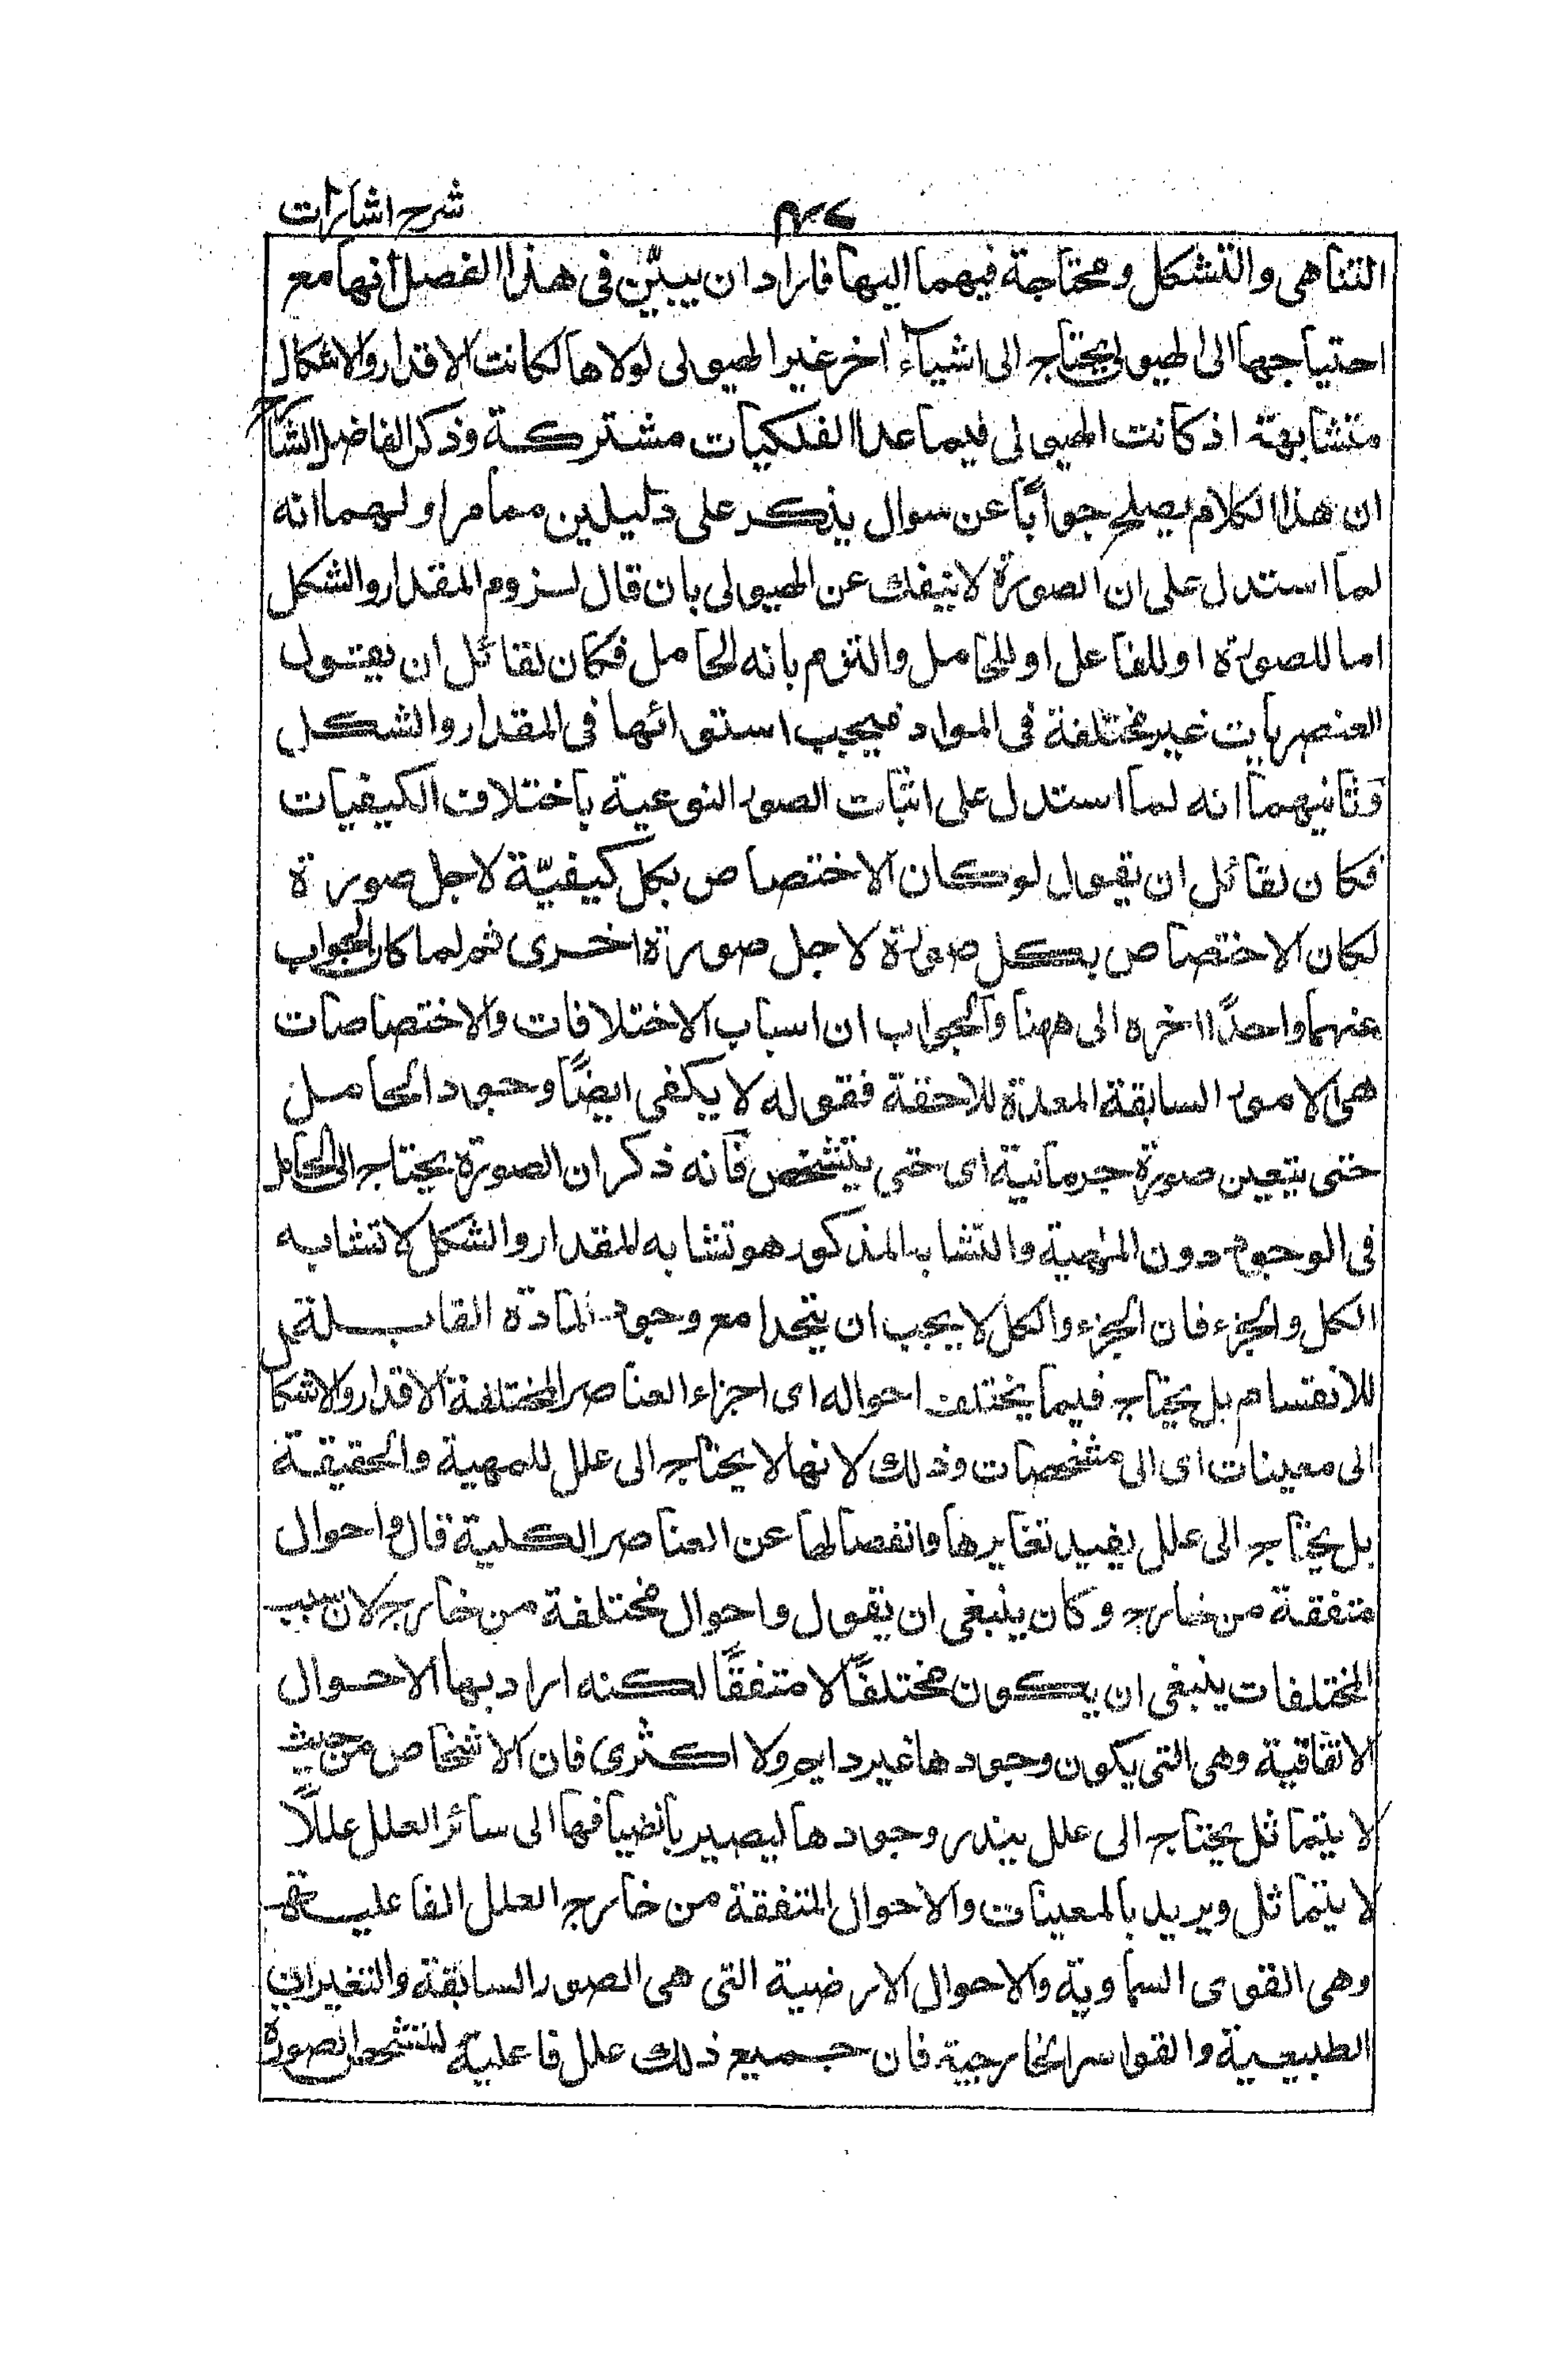 شرح اشارات
التناهى والتشكل ومحتاجة فيهما اليها فاراد ان يبيّن فى هذا الفصل انها مع
احتياجها الى الهيولى يحتاج الى اشيآء اخر غير الهيولى لولاها لكانت الاقدار والاشكال
متشابهة اذ كانت الهيولى فيما عدا الفلكيات مشتركة وذكر الفاضل الشارح
ان هذا الكلام يصلح جوابًا عن سوال يذكر على دليلين مما مر اولهما انه
لما استدل على ان الصورة لا ينفك عن الهيولى بان قال لزوم المقدار والشكل
اما للصورة او للفاعل او للحامل والتزم بانه للحامل فكان لقائل ان يقول
العنصريات غير مختلفة فى المواد فيجب استوائها فى المقدار والشكل
وثانيهما انه لما استدل على اثبات الصور النوعية باختلاف الكيفيات
فكان لقائل ان يقول لو كان الاختصاص بكل كيفيّة لاجل صورة
لكان الاختصاص بكل صورة لاجل صورة اخرى ثم لما كان الجواب
عنهما واحدًا اخره الى ههنا والجواب ان اسباب الاختلافات والاختصاصات
هى الامور السابقة المعدة للاحقة فقوله لا يكفى ايضًا وجود الحامل
حتى يتعين صورة جرمانية اى حتى يتشخص فانه ذكر ان الصورة يحتاج الى الحامل
فى الوجود دون المهية والتشابه المذكور هو تشابه المقدار والشكل لا تشابه
الكل والجزء فان الجزء والكل لا يجب ان يتحدا مع وجود المادة القابلة
للانقسام بل يحتاج فيما يختلف احواله اى اجزاء العناصر المختلفة الاقدار والاشكال
الى معينات اى الى مشخصات وذلك لانها لا يحتاج الى علل للمهية والحقيقة
بل يحتاج الى علل يفيد تغايرها وانفصالها عن العناصر الكلية قال واحوال
متفقة من خارج وكان ينبغى ان يقول واحوال مختلفة من خارج لان سبب
المختلفات ينبغى ان يكون مختلفًا لا متفقًا لكنه اراد بها الاحوال
الاتفاقية وهى التى يكون وجودها غير دايم ولا اكثرى فان الاشخاص من حيث
لا يتماثل يحتاج الى علل يندر وجودها ليصير بانضيافها الى سائر العلل عللًا
لا يتماثل ويريد بالمعينات والاحوال المتفقة من خارج العلل الفاعلية
وهى القوى السماوية والاحوال الارضية التى هى الصور السابقة والتغيرات
الطبيعية والقواسر الخارجية فان جميع ذلك علل فاعلية لتشخص الصورة